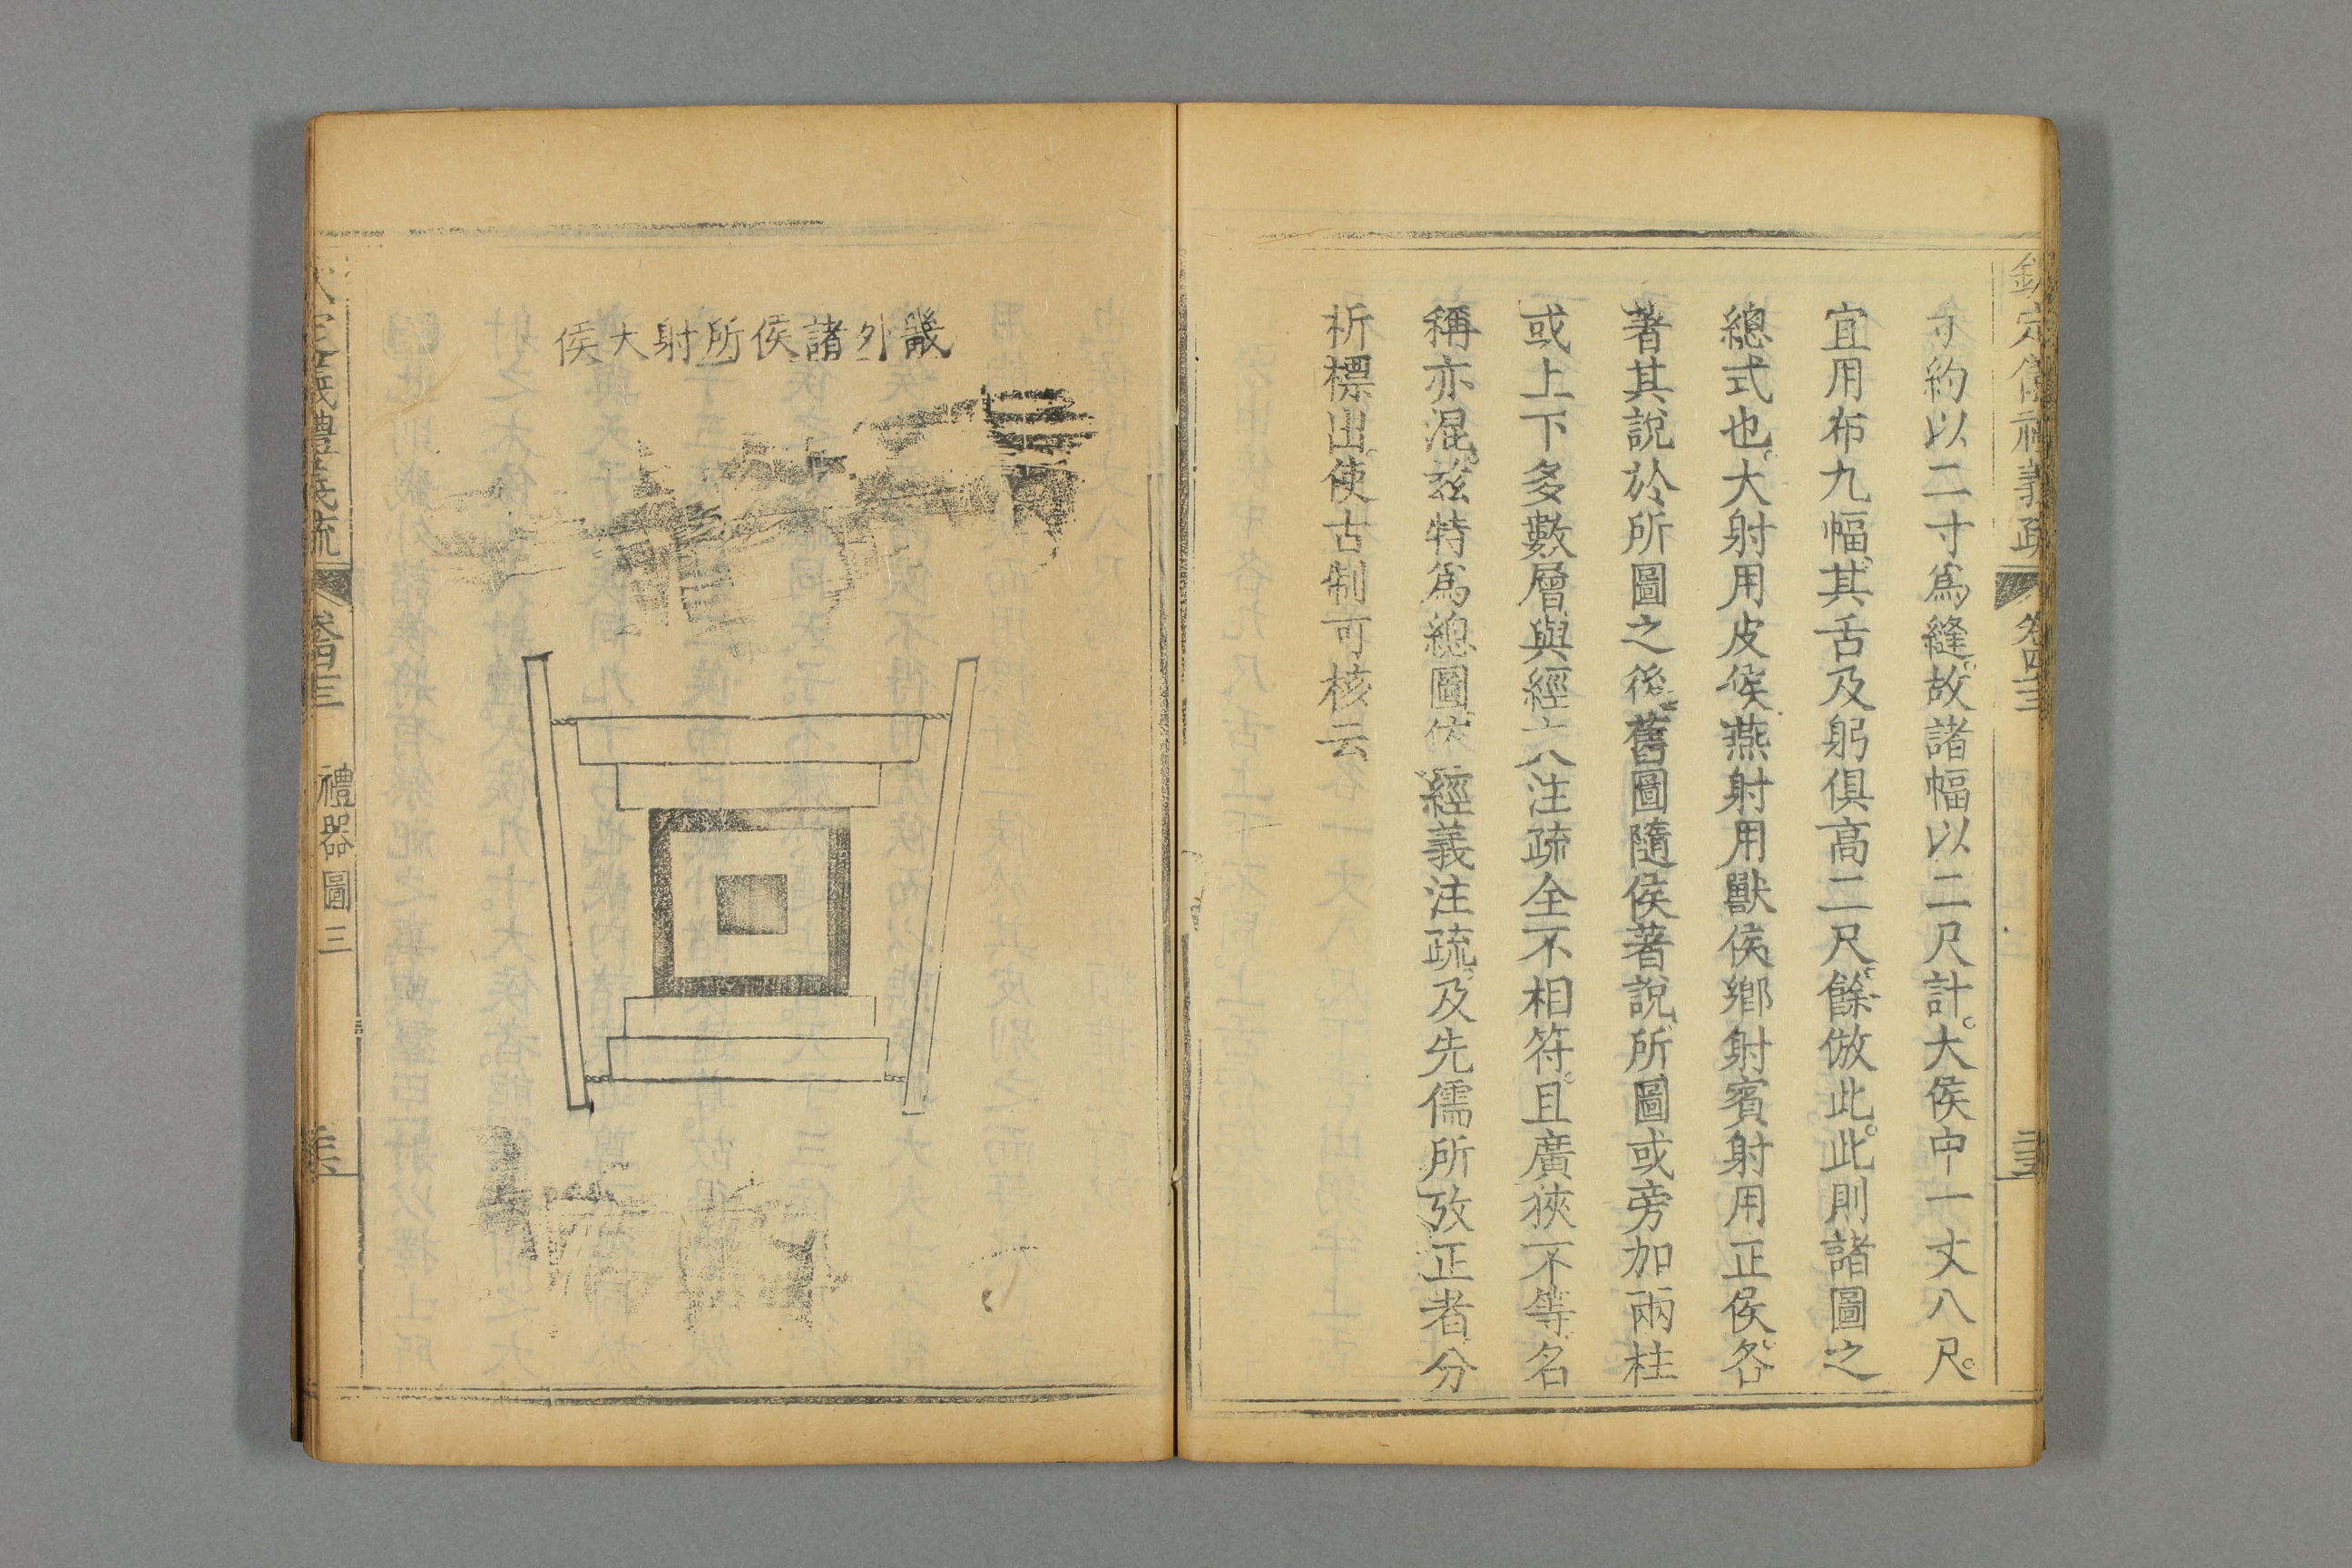 欽定儀禮義疏 卷四十三
寸約以二寸爲縫。故諸幅以二尺計。大侯中一丈八尺。
宜用布九幅。其舌及躬俱高二尺。餘倣此。此則諸圖之
總式也。大射用皮侯。燕射用獸侯。鄉射賓射用正侯。各
著其說於所圖之後。舊圖隨侯著說。所圖或旁加兩柱
或上下多數層。與經六八注疏全不相符。且廣狹不等。名
稱亦混。茲特爲總圖。依經義注疏。及先儒所攷正者。分
析標出。使古制可核云
畿外諸侯所射大侯
欽定儀禮義疏 卷四十三 禮器圖三